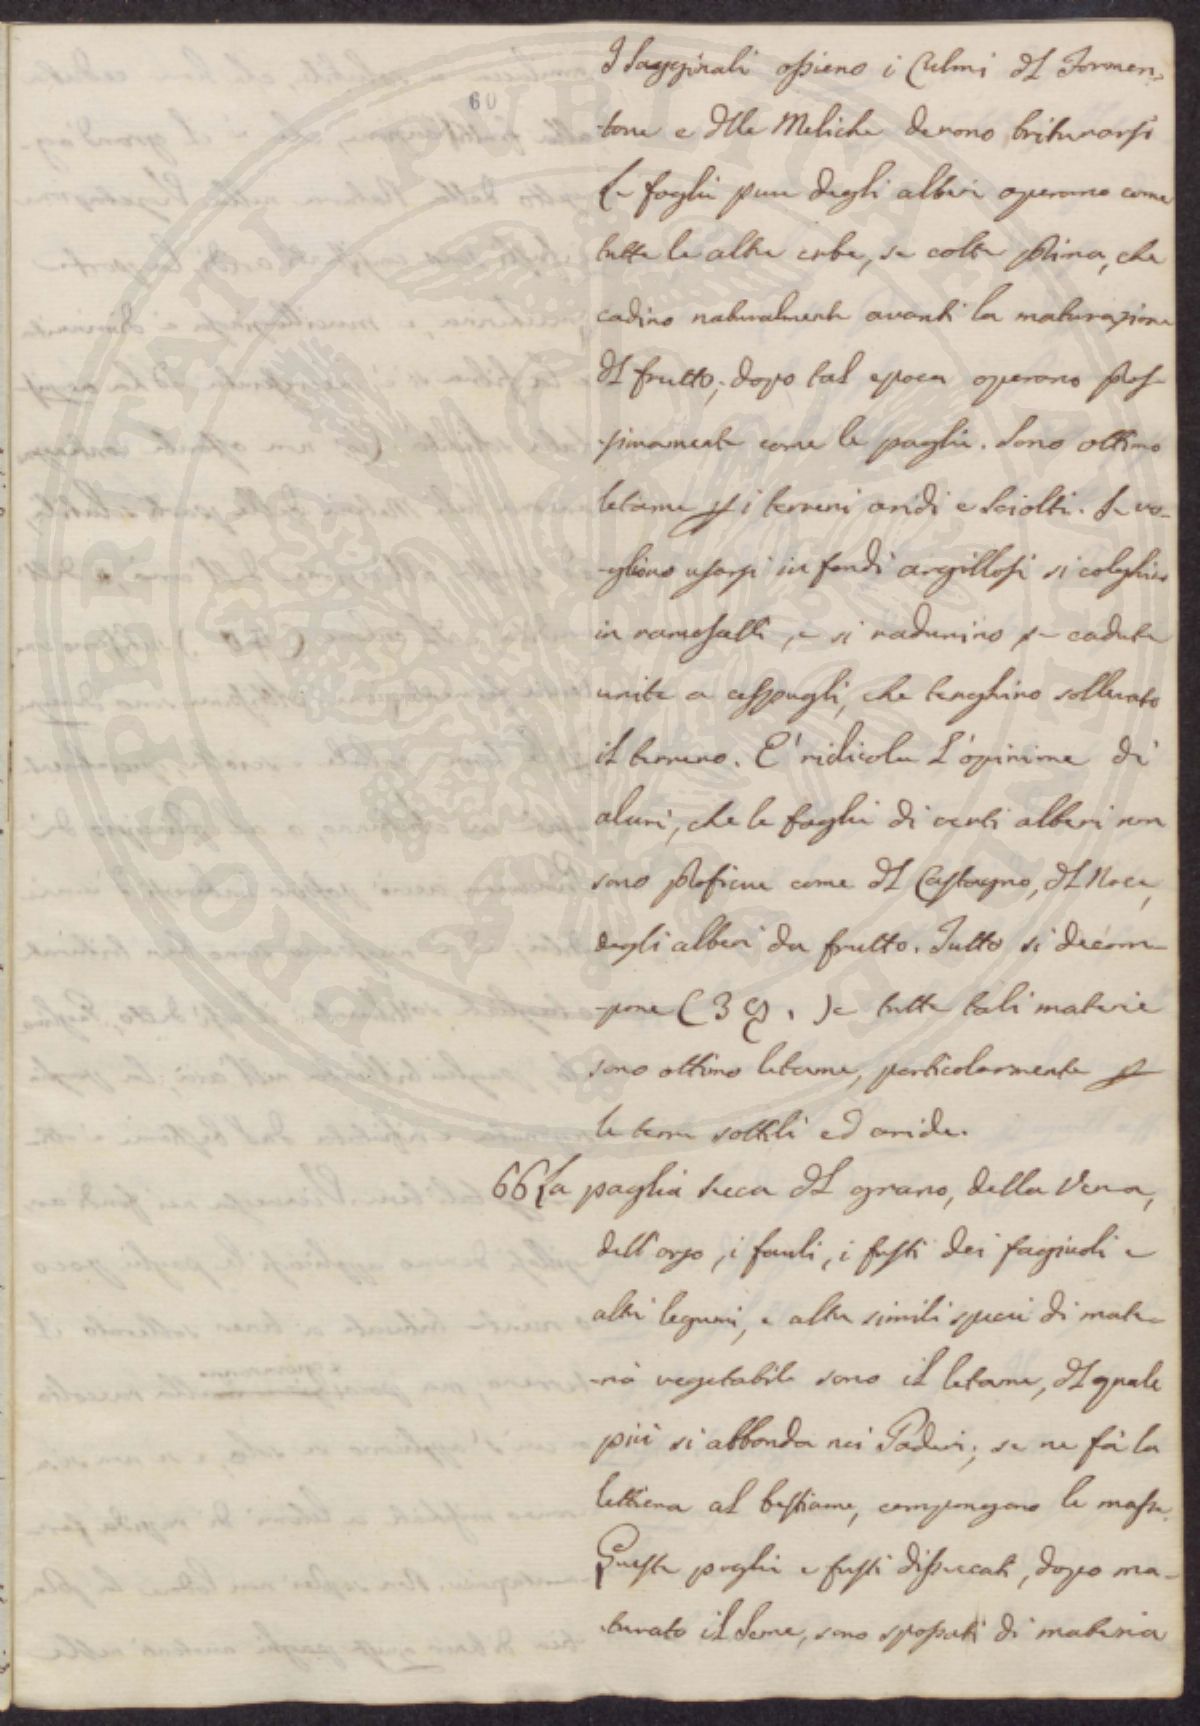 60
I Sagginali ossieno i Culmi del Formen-
-tone e delle Meliche devono triturarsi
Le foglie pure degli alberi operano come
tutte le altre erbe, se colte prima, che
cadino naturalmente avanti la maturazione
del frutto; dopo tal epoca operano pros-
-simamente come le paglie. Sono ottimo
letame per i terreni aridi e sciolti. Se vo-
-gliono usarsi in fondi argillosi si colghino
in ramoscelli, e si radunino se cadute
unite a cespugli, che tenghino sollevato
il terreno. E' ridicola l'opinione di
alcuni, che le foglie di certi alberi non
sono proficue come del Castagno, del Noce,
degli alberi da frutto. Tutto si decom-
-pone (39.) e tutte tali materie
sono ottimo letame, particolarmente per
le terre sottili ed aride.
66 La paglia secca del grano, della Vena,
dell'orzo, i fauli, i fusti dei fagiuoli e
altri legumi, e altre simili specie di mate-
-ria vegetabile sono il letame, del quale
più si abbonda nei Poderi; se ne fà la
lettiera al bestiame, compongono le masse.
Queste paglie e fusti disseccati, dopo ma-
-turato il seme, sono spossati di materia
PROSPERITATI PUBLICAE AUGENDAE